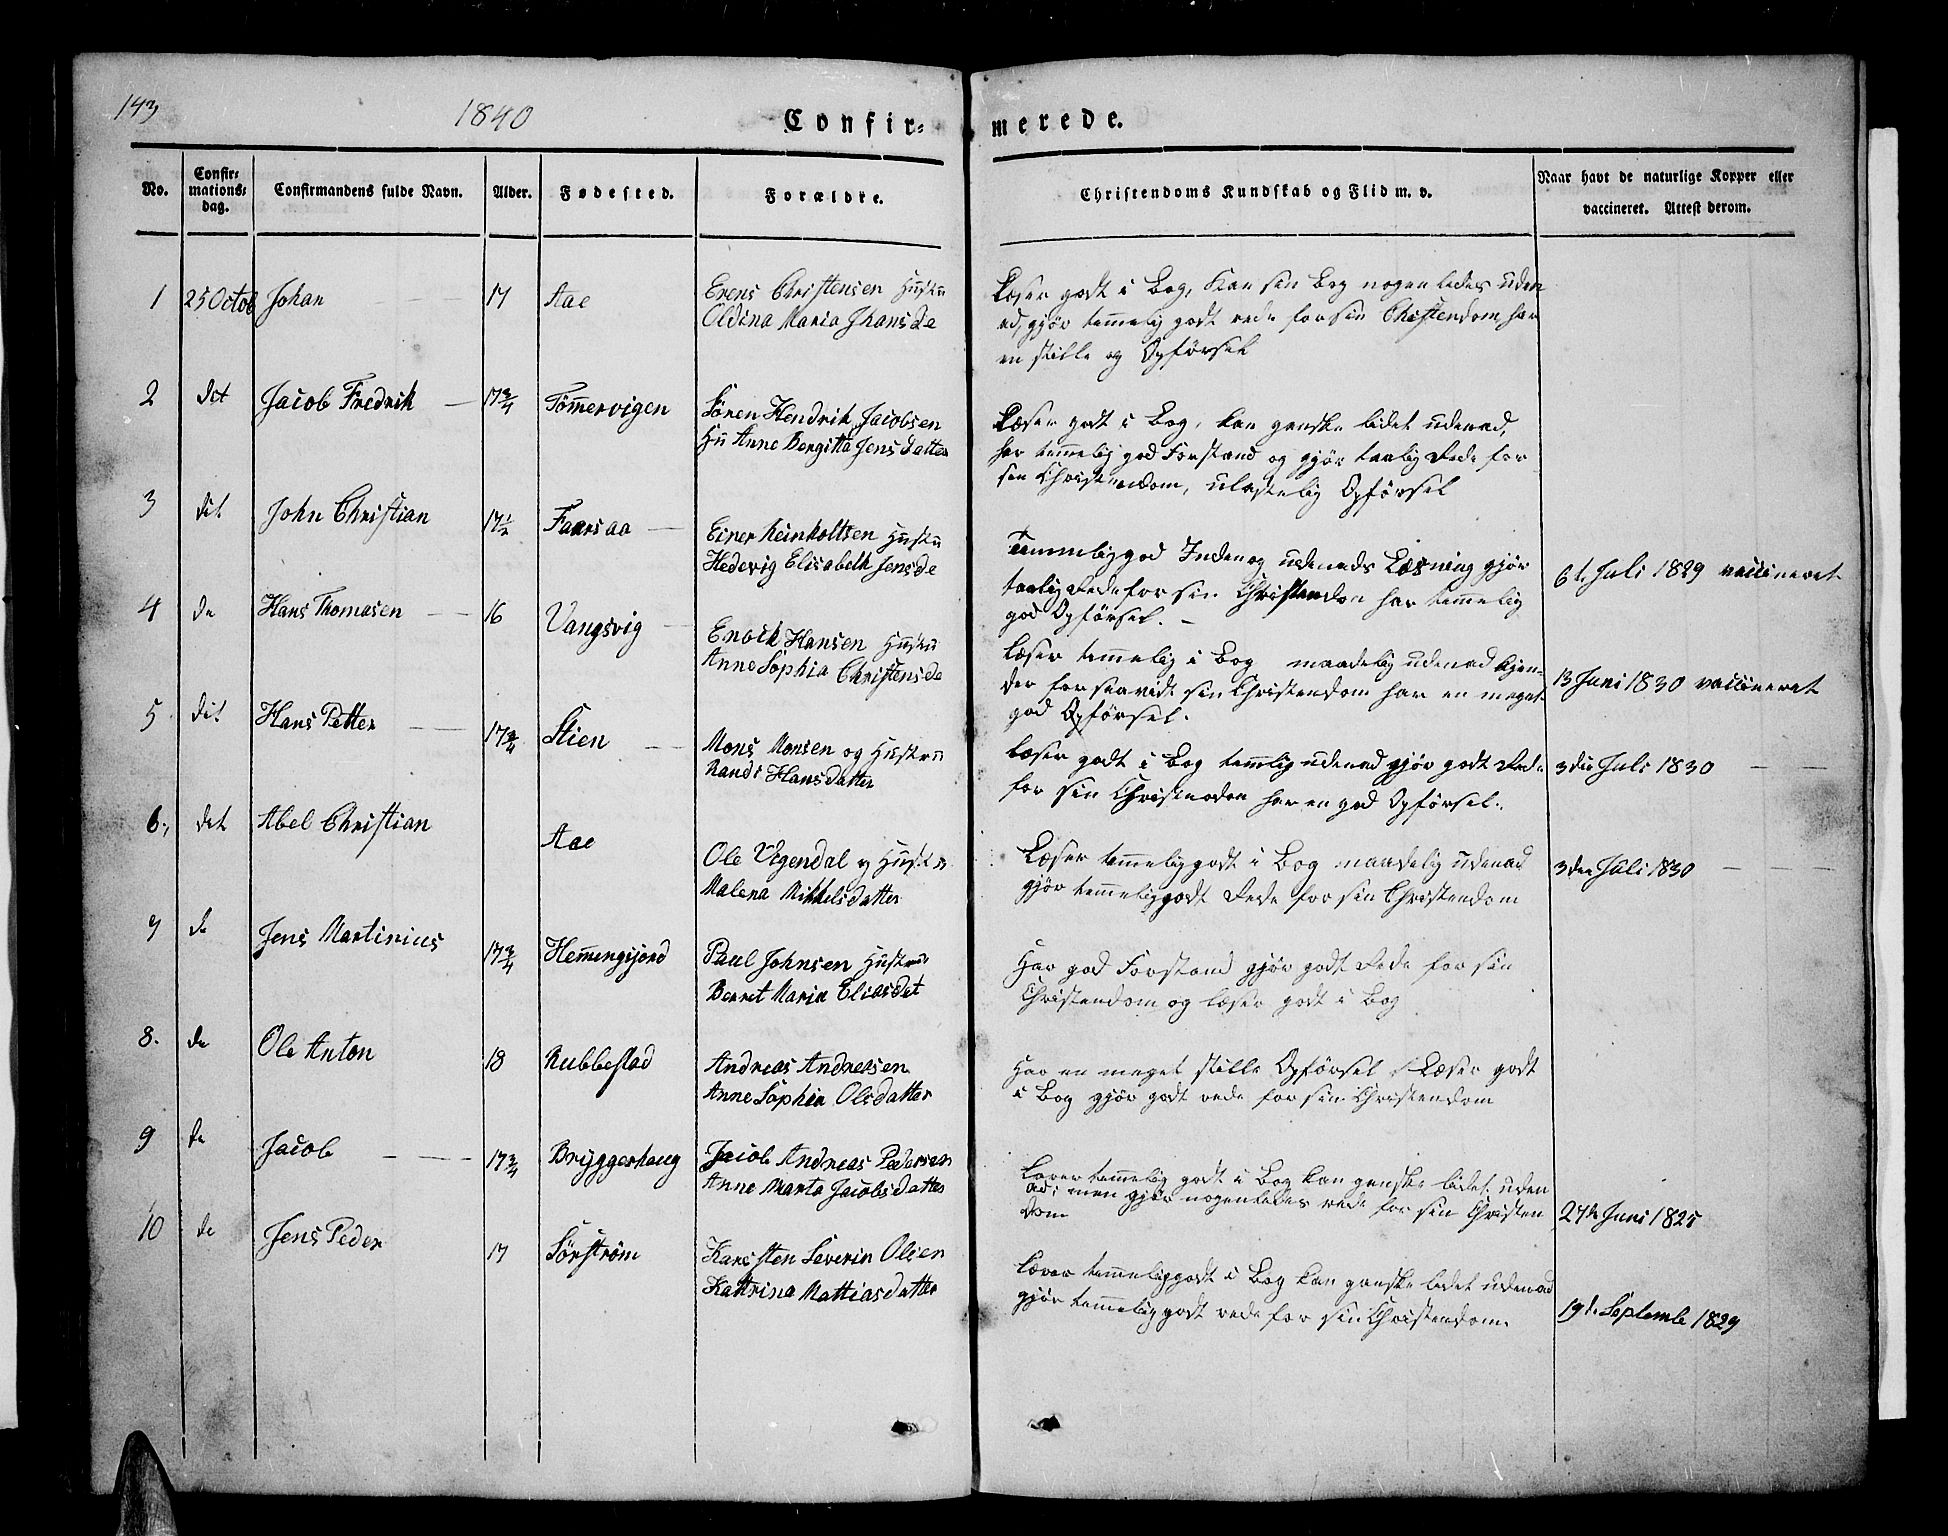 143
1840
Confir-
merede.
No.
Confir-
mations-
dag.
Confirmandens fulde Navn.
Alder.
Fødested.
Forældre.
Christendoms Kundskab og Flid m. v.
Naar havt de naturlige Kopper eller
vaccineret. Attest derom.
1 25 Octob Johan 17 Aae
Erens Christensen Hustru
Oldina Maria Jhansda
Læser godt i Bog, kan sin Bog nogenledes uden-
ad, gjør temmelig godt rede for sin Christendom, har
en stille og Opførsel
2 det Jacob Fredrik 17 3/4 Tömervigen
Sören Hendrik Jacobsen
Hu Anne Bergitta Jensdatter
Læser godt i Bog, kan ganske lidet udenad,
har temmelig god Forstand og gjør taalig Rede for
sin Christendom, ulastelig Opførsel
3 det John Christian 17 1/2 Faarsaa
Einer Reinholtsen Hustru
Hedevig Elisabeth Jensda
Temmelig god Inden og udenads Læsning gjør
taalig Rede for sin Christendom har temmelig
god Opførsel.
6t Juli 1829 vaccineret
4 de Hans Thomasen 16 Vangsvig
Enoik Hansen Hustru
Anne Sophia Christensda
Læser temmelig i Bog maadelig udenad kjen-
der forsaavidt sin Christendom har en meget
god Opførsel.
13 Juni 1830 vaccineret
5. det Hans Petter 17 3/4 Stien
Mons Monsen og Hustru
Randi Hansdatter
Læser godt i Bog temlig udenad gjør godt Rede
for sin Christendom har en god Opførsel.
3die Juli 1830
6., det Abel Christian Aae
Ole Vegendal og Hustru
Malena Mikkelsdatter
Læser temmelig godt i Bog maadelig udenad
gjør temmelig godt Rede for sin Christendom
3die Juli 1830
7 de Jens Martinius 17 3/4 Hemingsjord
Paul Johnsen Hustru
Berret Maria Eliasdet
Har god Forstand gjør godt Rede for sin
Christendom og læser godt i Bog
8. de Ole Anton 18 Rubbestad
Andreas Andreasen
Anne Sophia Olsdatter
Har en meget stille Opførsel Læser godt
i Bog gjør godt rede for sin Christendom
9 de Jacob 17 3/4 Bryggeshaug
Jacob Andreas Pedersen
Anne Marta Jacobsdatter
temmelig godt i Bog kan ganske lidet uden
ad, men gjør nogenledes rede for sin Christen
dom
27de Juni 1825
10 de Jens Peder 17 Sörström
Karsten Severin Olsen
Kattrina Mattiasdatter
temmelig godt i Bog kan ganske lidet udenad
gjør temmelig godt rede for sin Christendom.
19t. Septemb 1829